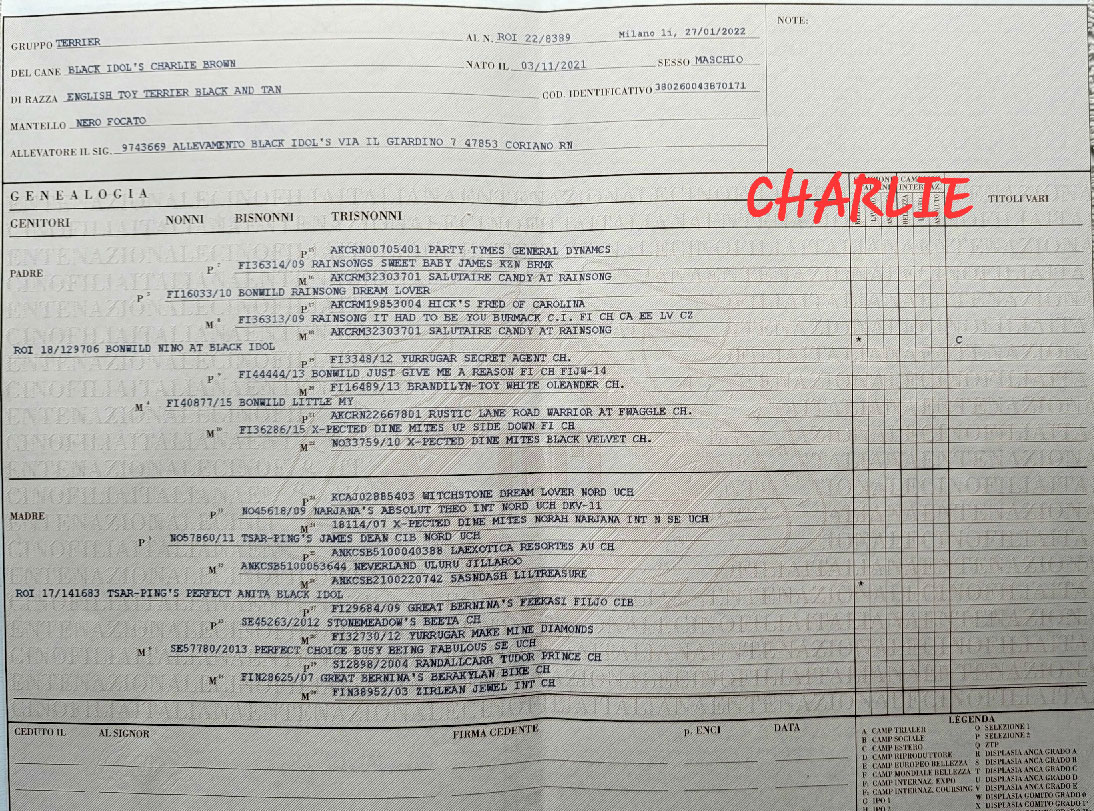 NOTE:
GRUPPO TERRIER AL N. ROI 22/8389 Milano li, 27/01/2022
DEL CANE BLACK IDOL'S CHARLIE BROWN NATO IL 03/11/2021 SESSO MASCHIO
DI RAZZA ENGLISH TOY TERRIER BLACK AND TAN COD. IDENTIFICATIVO 380260043870171
MANTELLO NERO FOCATO
ALLEVATORE IL SIG. 9743669 ALLEVAMENTO BLACK IDOL'S VIA IL GIARDINO 7 47853 CORIANO RN
CHARLIE
GENEALOGIA
GENITORI NONNI BISNONNI TRISNONNI TITOLI VARI
P AKCRN00705401 PARTY TYMES GENERAL DYNAMCS
PADRE P FI36314/09 RAINSONGS SWEET BABY JAMES KEN BRMK
M AKCRM32303701 SALUTAIRE CANDY AT RAINSONG
P FI16033/10 BONWILD RAINSONG DREAM LOVER
P AKCRM19853004 HICK'S FRED OF CAROLINA
M FI36313/09 RAINSONG IT HAD TO BE YOU BURMACK C.I. FI CH CA EE LV CZ
M AKCRM32303701 SALUTAIRE CANDY AT RAINSONG
ROI 18/129706 BONWILD NINO AT BLACK IDOL * C
P FI3348/12 YURRUGAR SECRET AGENT CH.
P FI44444/13 BONWILD JUST GIVE ME A REASON FI CH FIJW-14
M FI16489/13 BRANDILYN-TOY WHITE OLEANDER CH.
M FI40877/15 BONWILD LITTLE MY
P AKCRN22667801 RUSTIC LANE ROAD WARRIOR AT FWAGGLE CH.
M FI36286/15 X-PECTED DINE MITES UP SIDE DOWN FI CH
M NO33759/10 X-PECTED DINE MITES BLACK VELVET CH.
P KCAJ02885403 WITCHSTONE DREAM LOVER NORD UCH
MADRE P NO45618/09 NARJANA'S ABSOLUT THEO INT NORD UCH DKV-11
M 18114/07 X-PECTED DINE MITES NORAH NARJANA INT N SE UCH
P NO57860/11 TSAR-PING'S JAMES DEAN CIB NORD UCH
P ANKCSB5100040388 LAEXOTICA RESORTES AU CH
M ANKCSB5100053644 NEVERLAND ULURU JILLAROO
M ANKCSB2100220742 SASNDASH LILTREASURE
ROI 17/141683 TSAR-PING'S PERFECT ANITA BLACK IDOL *
P FI29684/09 GREAT BERNINA'S FEEKASI FILJO CIB
P SE45263/2012 STONEMEADOW'S BEETA CH
M FI32730/12 YURRUGAR MAKE MINE DIAMONDS
M SE57780/2013 PERFECT CHOICE BUSY BEING FABULOUS SE UCH
P SI2898/2004 RANDALLCARR TUDOR PRINCE CH
M FIN28625/07 GREAT BERNINA'S BERAKYLAN BIKE CH
M FIN38952/03 ZIRLEAN JEWEL INT CH
CEDUTO IL AL SIGNOR FIRMA CEDENTE p. ENCI DATA
LEGENDA
A CAMP TRIALER O SELEZIONE 1
B CAMP SOCIALE P SELEZIONE 2
C CAMP ESTERO Q ZTP
D CAMP RIPRODUTTORE R DISPLASIA ANCA GRADO A
E CAMP EUROPEO BELLEZZA S DISPLASIA ANCA GRADO B
F CAMP MONDIALE BELLEZZA T DISPLASIA ANCA GRADO C
CAMP INTERNAZ. EXPO U DISPLASIA ANCA GRADO D
CAMP INTERNAZ. COURSING V DISPLASIA ANCA GRADO E
G IPO 1 W DISPLASIA GOMITO GRADO 0
X DISPLASIA GOMITO GRADO 1